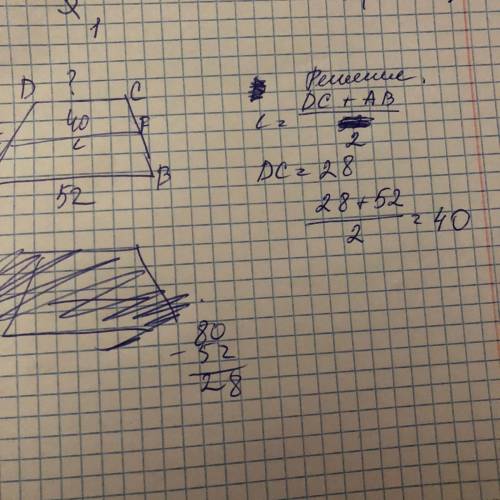 1
D ? C
40 F
L
B
52
Решение.
L = DC + AB
2
DC = 28
28 + 52
2 = 40
80
- 52
28